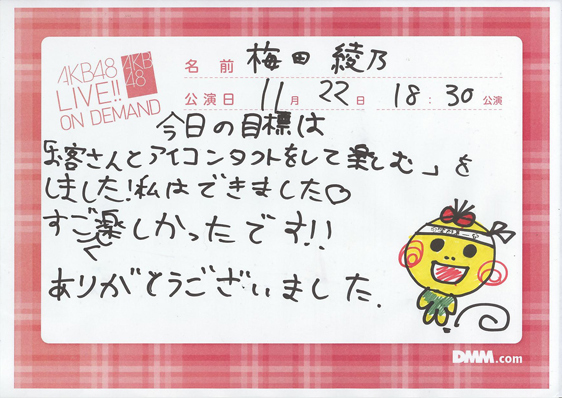 AKB48
LIVE!!
ON DEMAND
AKB
48
名 前 梅田 綾乃
公演日 11月 22日 18:30公演
今日の目標は
「お客さんとアイコンタクトをして楽しむ」を
しました!私はできました♡
すごく楽しかったです!!
ありがとうございました.
DMM.com